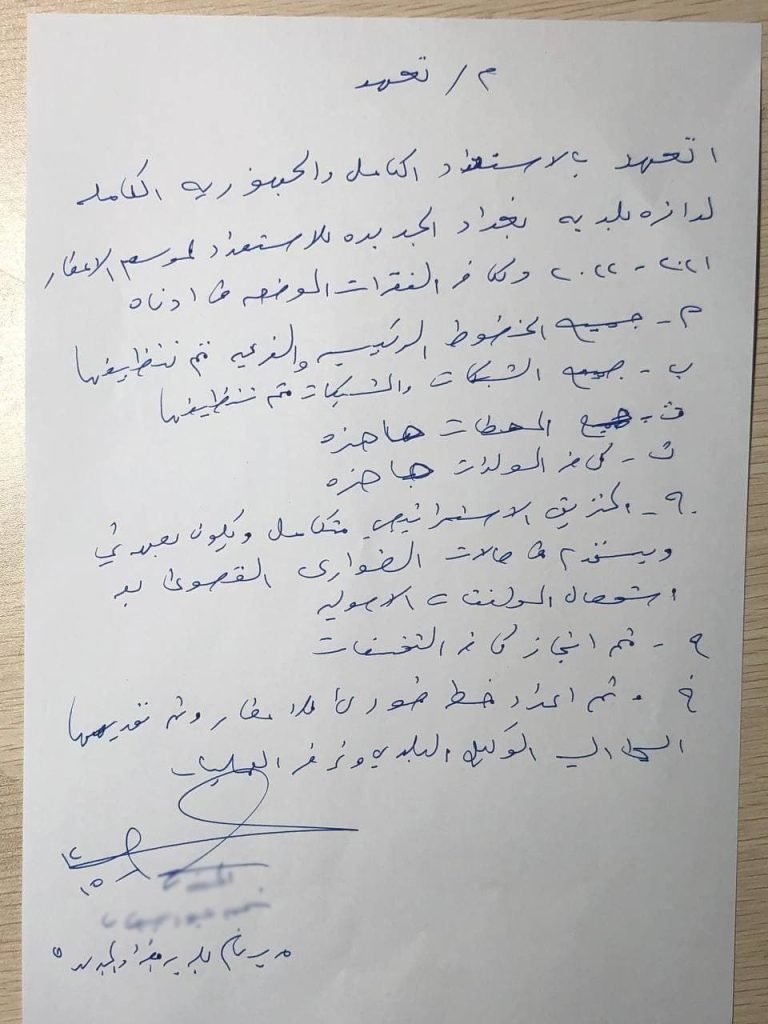 م / تعهد
اتعهد بالاستعداد الكامل والجهوزية الكامله
لدائرة بلدية بغداد الجديده للاستعداد لموسم الامطار
٢٠٢١ - ٢٠٢٢ وكافة الفقرات الموضحه في ادناه
م - جميع الخطوط الرئيسيه والفرعيه تم تنظيفها
ب - جميع الشبكات والمشبكات تم تنظيفها
ت - جميع المحطات جاهزه
ث - كافة المولدات جاهزه
الخزين الاستراتيجي متكامل ويكون بعهدتي
ويستخدم في حالات الطوارئ القصوى
استحصال الموافقات الاصوليه
ح - تم انجاز كافة التخسفات
خ - تم اعداد خطة طوارئ للامطار وتم تقديمها
الى الوكيل البلدي وغرفة العمليات
١٢
١٥
مدير عام بلدية بغداد الجديدة